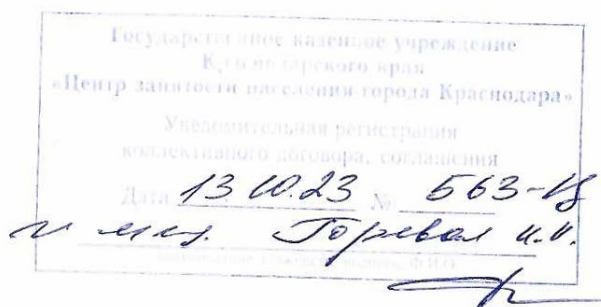 Государственное казенное учреждение
Краснодарского края
«Центр занятости населения города Краснодара»
Уведомительная регистрация
коллективного договора, соглашения
Дата 13.10.23 № 563-
Горевал И.И.